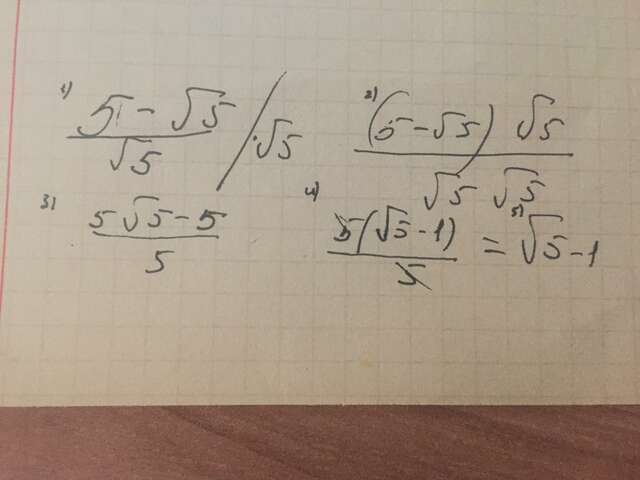 1) (5 - √5)/√5 / ·√5
2) ((5 - √5) √5)/(√5 √5)
3) (5√5 - 5)/5
4) (5(√5 - 1))/5 = 5) √5 - 1